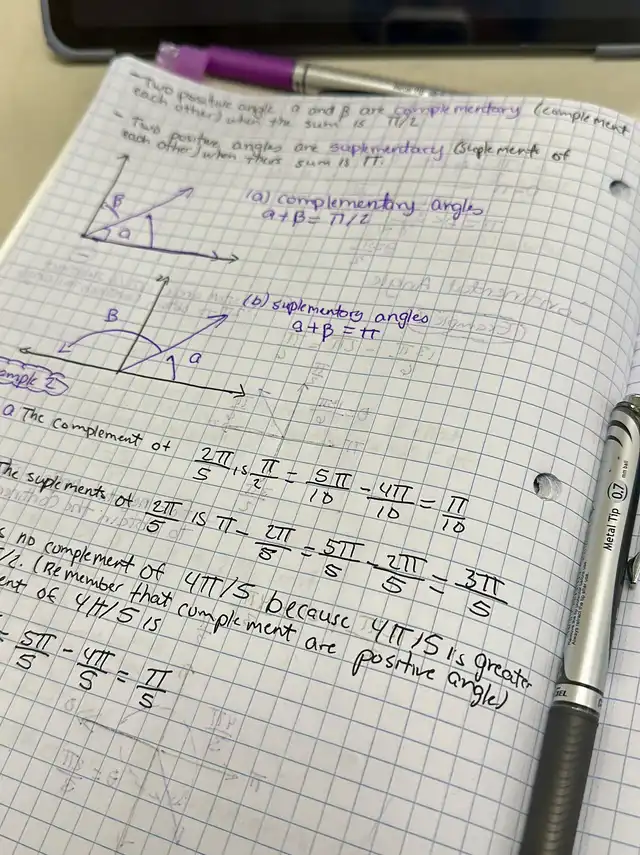 - Two positive angle a and β are complementary (complement
each other) when the sum is π/2
- Two positive angles are suplementacy (suplement of
each other) when thers sum is π.
(a) complementary angles
a+β = π/2
β
a
(b) suplementory angles
a+β = π
β
a
ample 2
a The complement of 2π/5 is π/2 = 5π/10 - 4π/10 = π/10
The suplements of 2π/5 is π - 2π/5 = 5π/5 - 2π/5 = 3π/5
s no complement of 4π/5 because 4π/5 is greater
/2. (Remember that complement are positive angle)
ent of 4π/5 is
= 5π/5 - 4π/5 = π/5
Metal Tip 0.7 mm ball